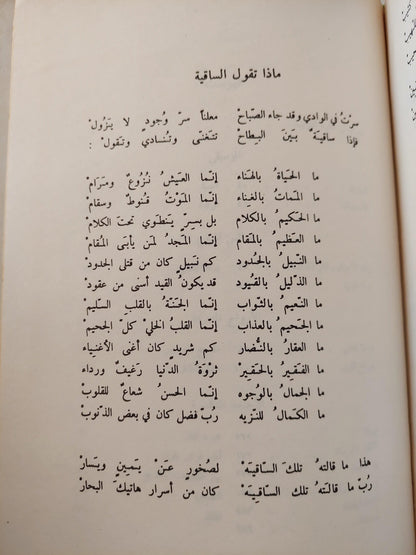 ماذا تقول الساقية
سرتُ في الوادي وقد جاء الصّباحْ معلناً سرّ وُجودٍ لا يَزُولْ
فإذا ساقيَةٌ بَينَ البِطاحْ تتغنّى وتُنسادي وتَقولْ :
ما الحَياةُ بالهَناء إنّما العَيشُ نُزُوعٌ ومَرَامْ
ما المَمَاتُ بالغِناء إنّما المَوْتُ قُنوطٌ وسقامْ
ما الحَكيمُ بالكلام بل بسِرٍّ يَنطَوي تحتَ الكلامْ
ما العَظيمُ بالمَقام إنّما المَجدُ لمَن يأبَى المُقامْ
ما النّبيلُ بالجُدود كم نَبيلٍ كان من قتلى الجدودْ
ما الذّليلُ بالقُيود قد يكونُ القيد أسنى من عقودْ
ما النّعيمُ بالثّواب إنّما الجَنّةُ بالقلبِ السّليمْ
ما الجَحيمُ بالعذاب إنّما القلبُ الخَلي كلّ الجحيمْ
ما العقارُ بالنُّضار كم شريدٍ كان أغنى الأغنياءْ
ما الفَقيرُ بالحَقيرْ ثَروَةُ الدّنيا رَغيفٌ ورداء
ما الجمالُ بالوُجوه إنّما الحسنُ شعاعٌ للقلوبْ
ما الكمَالُ للنّزيه رُبّ فضل كان في بعض الذّنوبْ
هذا ما قالتهُ تلكَ السّاقيَهْ لصُخورٍ عَنْ يَمينٍ ويَسارْ
رُبّ ما قالَتهُ تلك السّاقيَهْ كان من أسرار هاتيكَ البحارْ